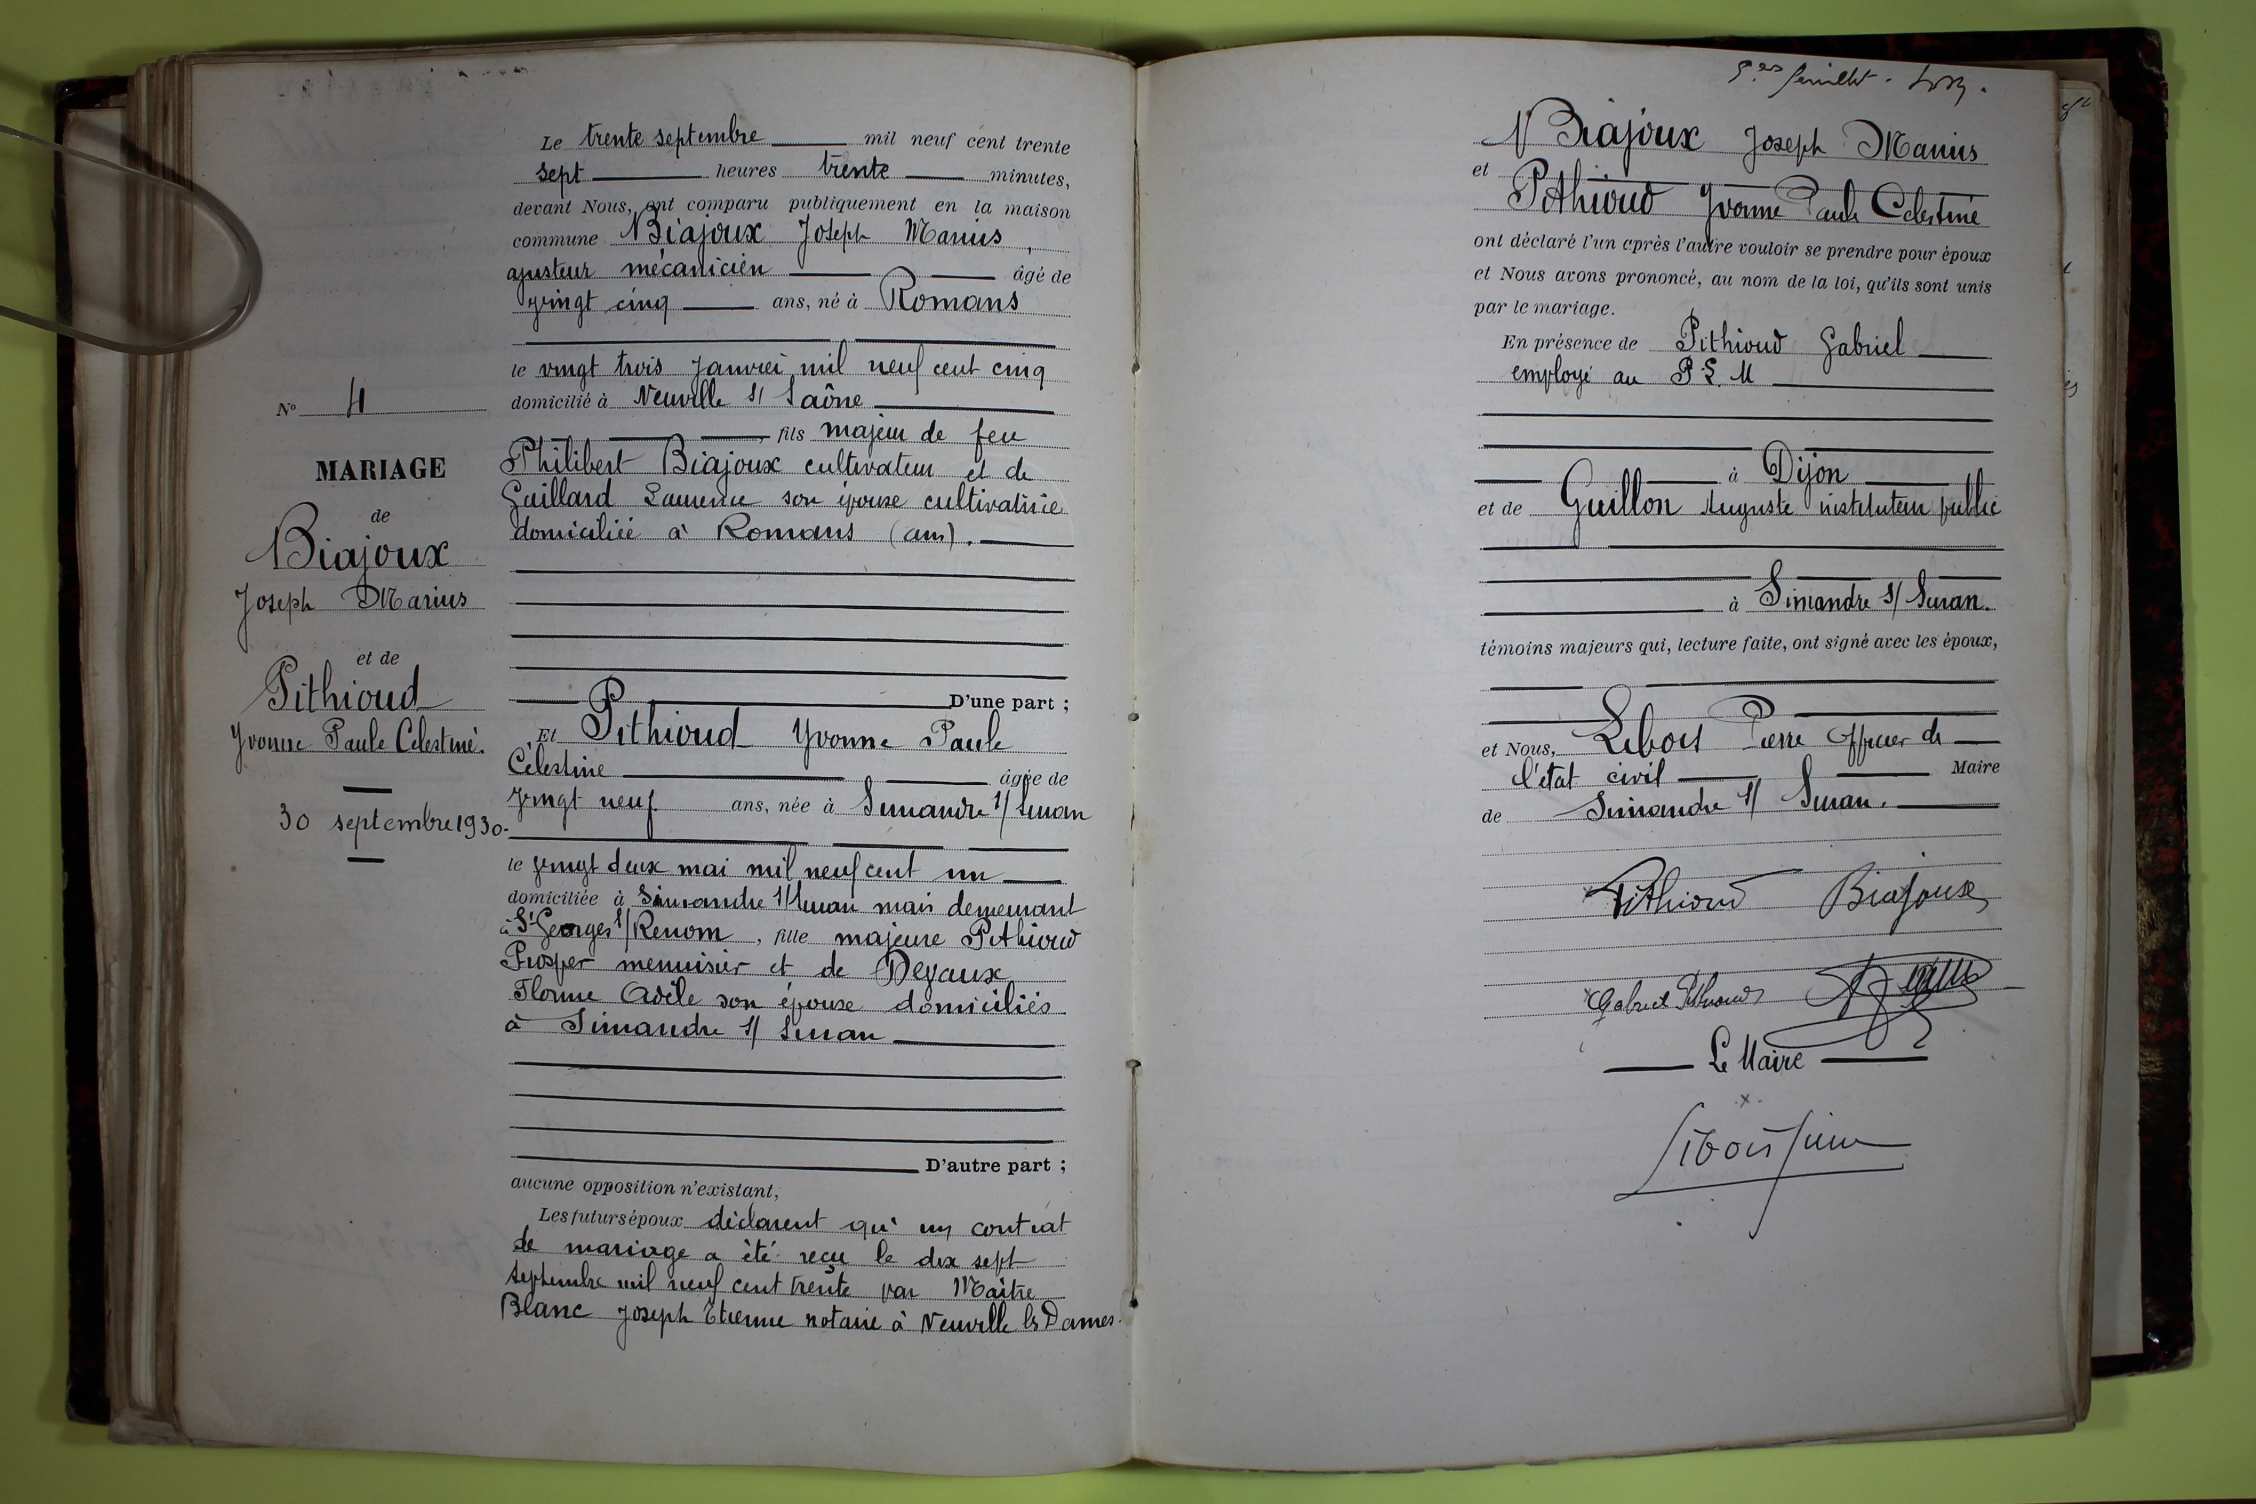 Le trente septembre mil neuf cent trente
sept heures trente minutes,
devant Nous, ont comparu publiquement en la maison
commune Biajoux Joseph Marius,
ajusteur mécanicien âgé de
vingt cinq ans, né à Romans
le vingt trois janvier mil neuf cent cinq
domicilié à Neuville s/ Saône
fils majeur de feu
Philibert Biajoux cultivateur et de
Guillard Laurence son épouse cultivatrice
domiciliée à Romans (ain).
D'une part ;
Et Pithioud Yvonne Paule
Célestine âgée de
vingt neuf ans, née à Simandre s/ Suran
le vingt deux mai mil neuf cent un
domiciliée à Simandre s/ Suran mais demeurant
à St Georges s/ Renom, fille majeure Pithioud
Prosper menuisier et de Devaux
Florine Adèle son épouse domiciliés
à Simandre s/ Suran
D'autre part ;
aucune opposition n'existant,
Les futurs époux déclarent qu'un contrat
de mariage a été reçu le dix sept
septembre mil neuf cent trente par Maître
Blanc Joseph Etienne notaire à Neuville les Dames.
No 4
MARIAGE
de
Biajoux
Joseph Marius
et de
Pithioud
Yvonne Paule Célestine.
30 septembre 1930.
feuillet.
Biajoux Joseph Marius
et
Pithioud Yvonne Paule Célestine
ont déclaré l'un après l'autre vouloir se prendre pour époux
et Nous avons prononcé, au nom de la loi, qu'ils sont unis
par le mariage.
En présence de Pithioud Gabriel
employé au P L M
à Dijon
et de Guillon Auguste instituteur public
à Simandre s/ Suran.
témoins majeurs qui, lecture faite, ont signé avec les époux,
et Nous, Lebois Pierre Officier de
l'état civil Maire
de Simandre s/ Suran.
Pithioud Biajoux
Gabriel Pithioud
Le Maire
Lebois Pierre